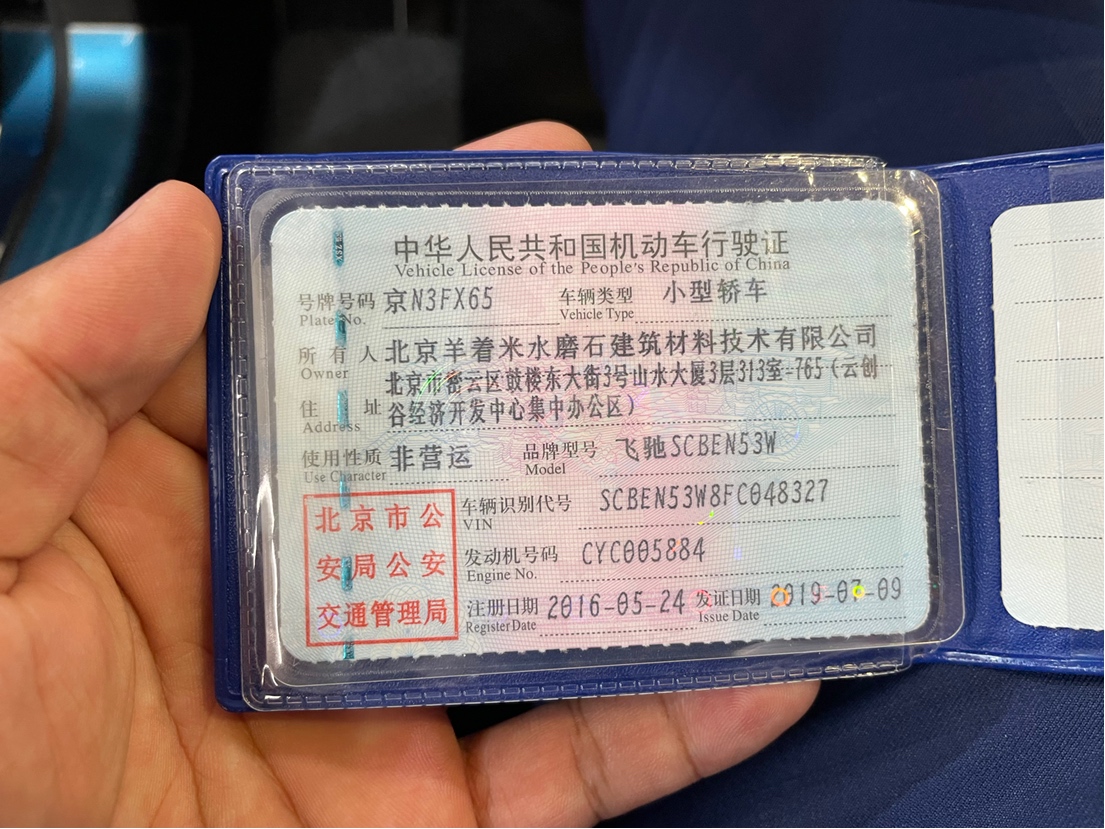 中华人民共和国机动车行驶证
Vehicle License of the People's Republic of China
号牌号码 京N3FX65 车辆类型 小型轿车
Plate No. Vehicle Type
所有人 北京羊着米水磨石建筑材料技术有限公司
Owner
北京市密云区鼓楼东大街3号山水大厦3层313室-765（云创
住址 谷经济开发中心集中办公区）
Address
使用性质 非营运 品牌型号 飞驰SCBEN53W
Use Character Model
北京市公
安局公安
交通管理局
车辆识别代号 SCBEN53W8FC048327
VIN
发动机号码 CYC005884
Engine No.
注册日期 2016-05-24 发证日期 2019-07-09
Register Date Issue Date